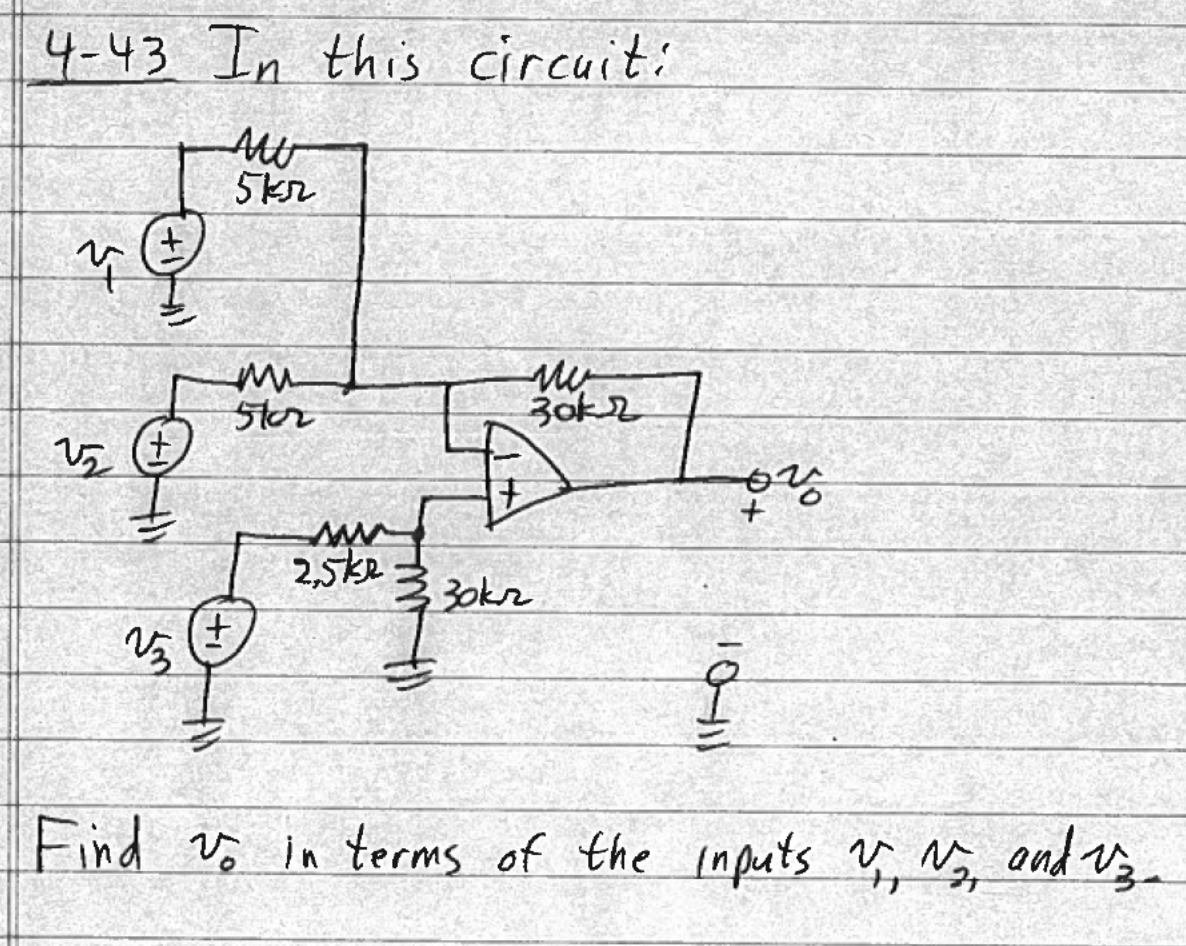 4-43 In this circuit:
5kΩ
+
-
v1
5kΩ
30kΩ
v2
+
-
-
+
v0
+
2,5kΩ
30kΩ
v3
+
-
-
Find v0 in terms of the inputs v1, v2, and v3.